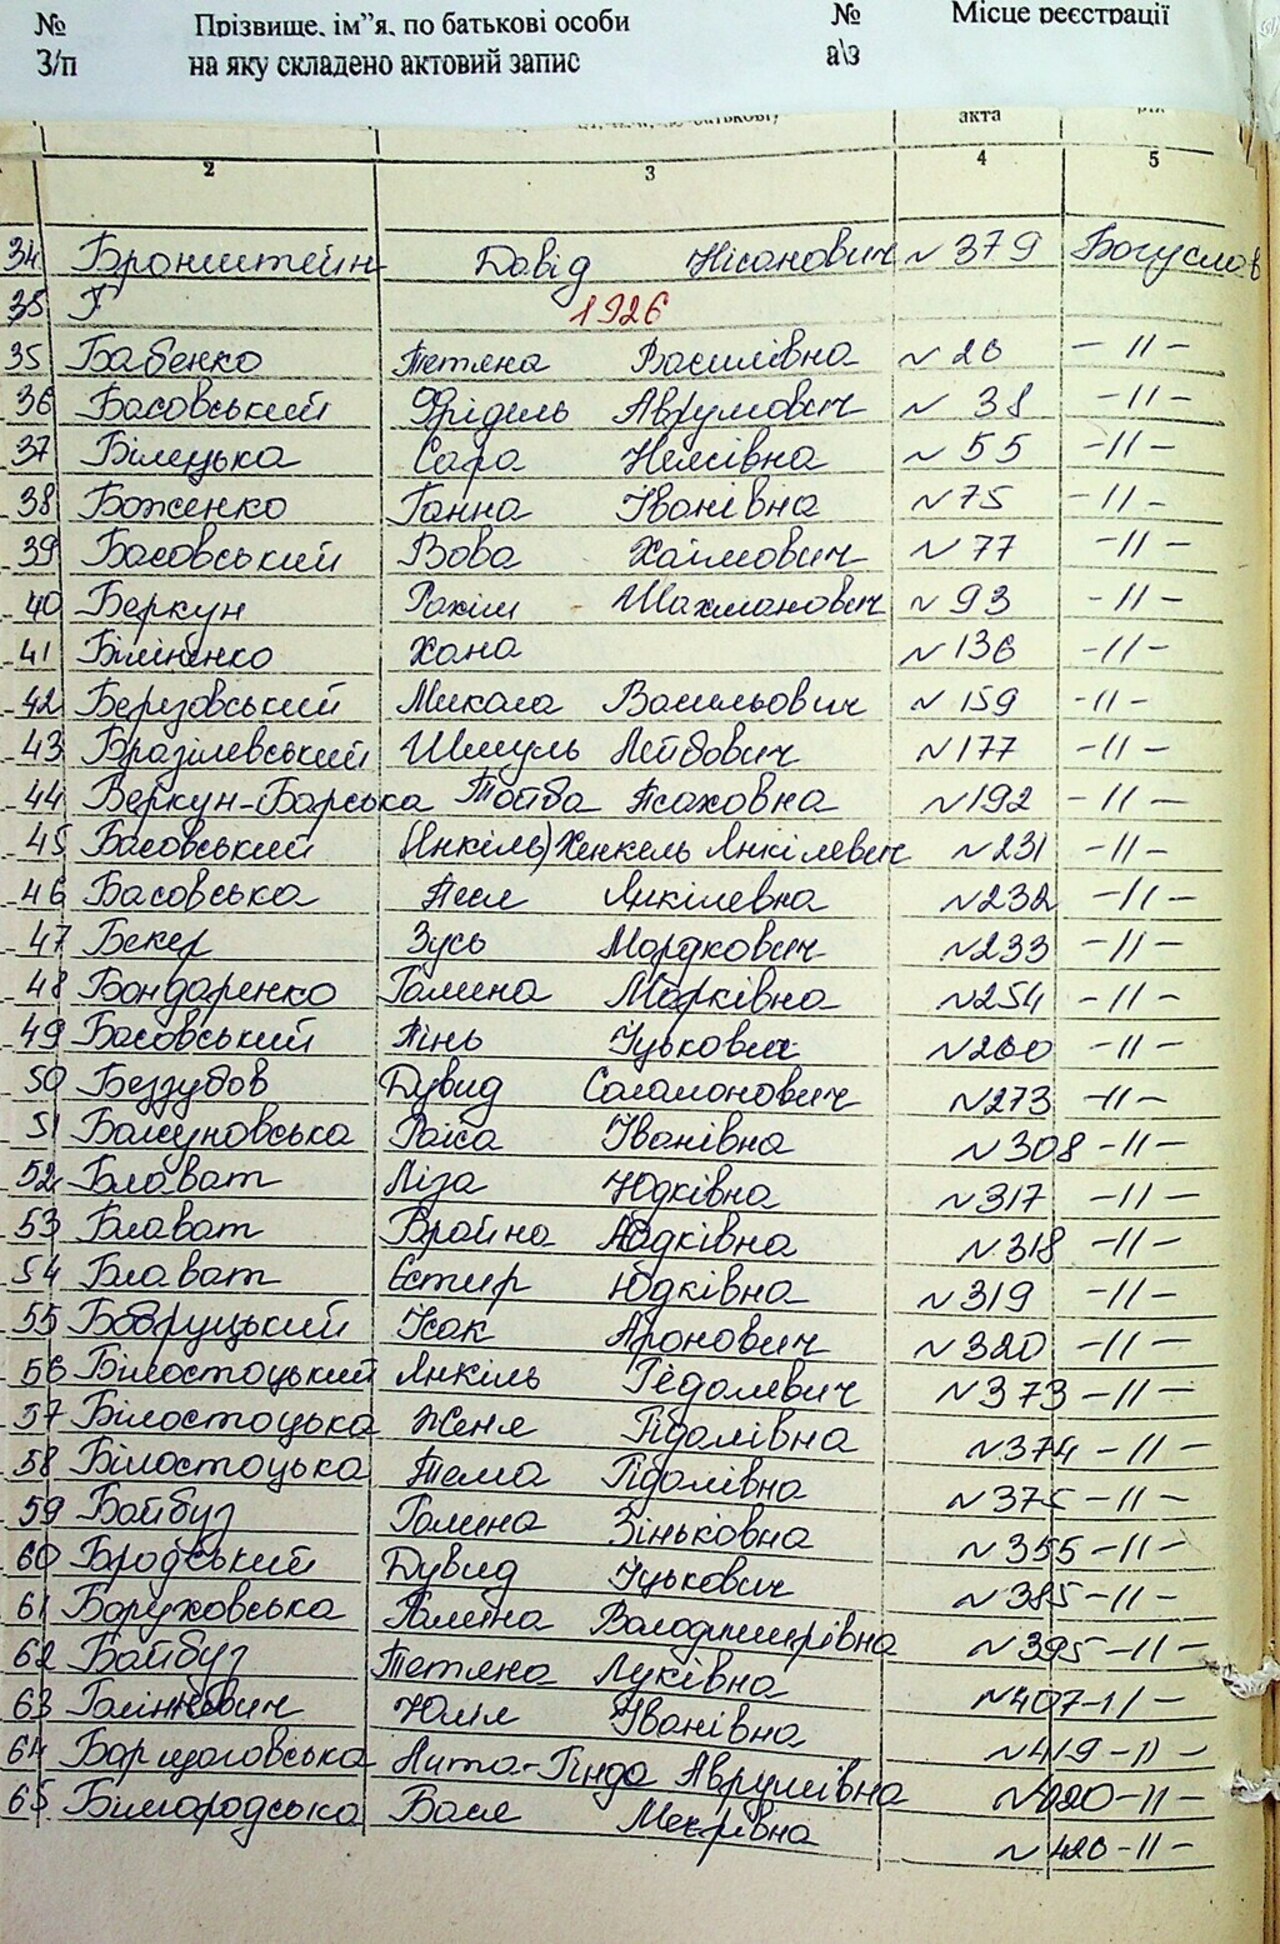 № Прізвище, ім”я, по батькові особи № Місце реєстрації
З/п на яку складено актовий запис а\з
акта
2 3 4 5
34 Бронштейн Давід Нісанович № 379 Богуслав
35 1926
35 Бабенко Тетяна Василівна № 20 -//-
36 Басовський Фрідель Аврумович № 38 -//-
37 Білецька Сара № 55 -//-
38 Боженко Ганна Іванівна № 75 -//-
39 Басовський Вова Хаїмович № 77 -//-
40 Беркун Рахіль Шахманович № 93 -//-
41 Хана № 136 -//-
42 Березовський Микола Васильович № 159 -//-
43 Бразілевський Шмуль Лейбович № 177 -//-
44 Беркун-Барська Тойба Псаховна № 192 -//-
45 Басовський (Янкіль) Хенкель Янкілевич № 231 -//-
46 Басовська Песя Янкілевна № 232 -//-
47 Бекер Зусь Мордкович № 233 -//-
48 Бондаренко Галина Марківна № 254 -//-
49 Басовський Пінь Іцькович № 260 -//-
50 Беззубов Дувид Соломонович № 273 -//-
51 Бажуновська Раїса Іванівна № 308 -//-
52 Блават Ліза Юдківна № 317 -//-
53 Блават Бройна Юдківна № 318 -//-
54 Блават Єстир Юдківна № 319 -//-
55 Бобруцький Ісак Аронович № 320 -//-
56 Білостоцький Янкіль Гедалевич № 373 -//-
57 Білостоцька Женя Гідалівна № 374 -//-
58 Білостоцька Тема Гідалівна № 375 -//-
59 Байбуз Галина Зіньковна № 355 -//-
60 Бродський Дувид Іцькович № 385 -//-
61 Боруховська Галина Володимирівна № 395 -//-
62 Байбуз Тетяна Луківна № 407 -//-
63 Юлія Іванівна № 419 -//-
64 Борщаговська Лита-Гінда Аврумівна № 420 -//-
65 Білгородська Вася № 420 -//-